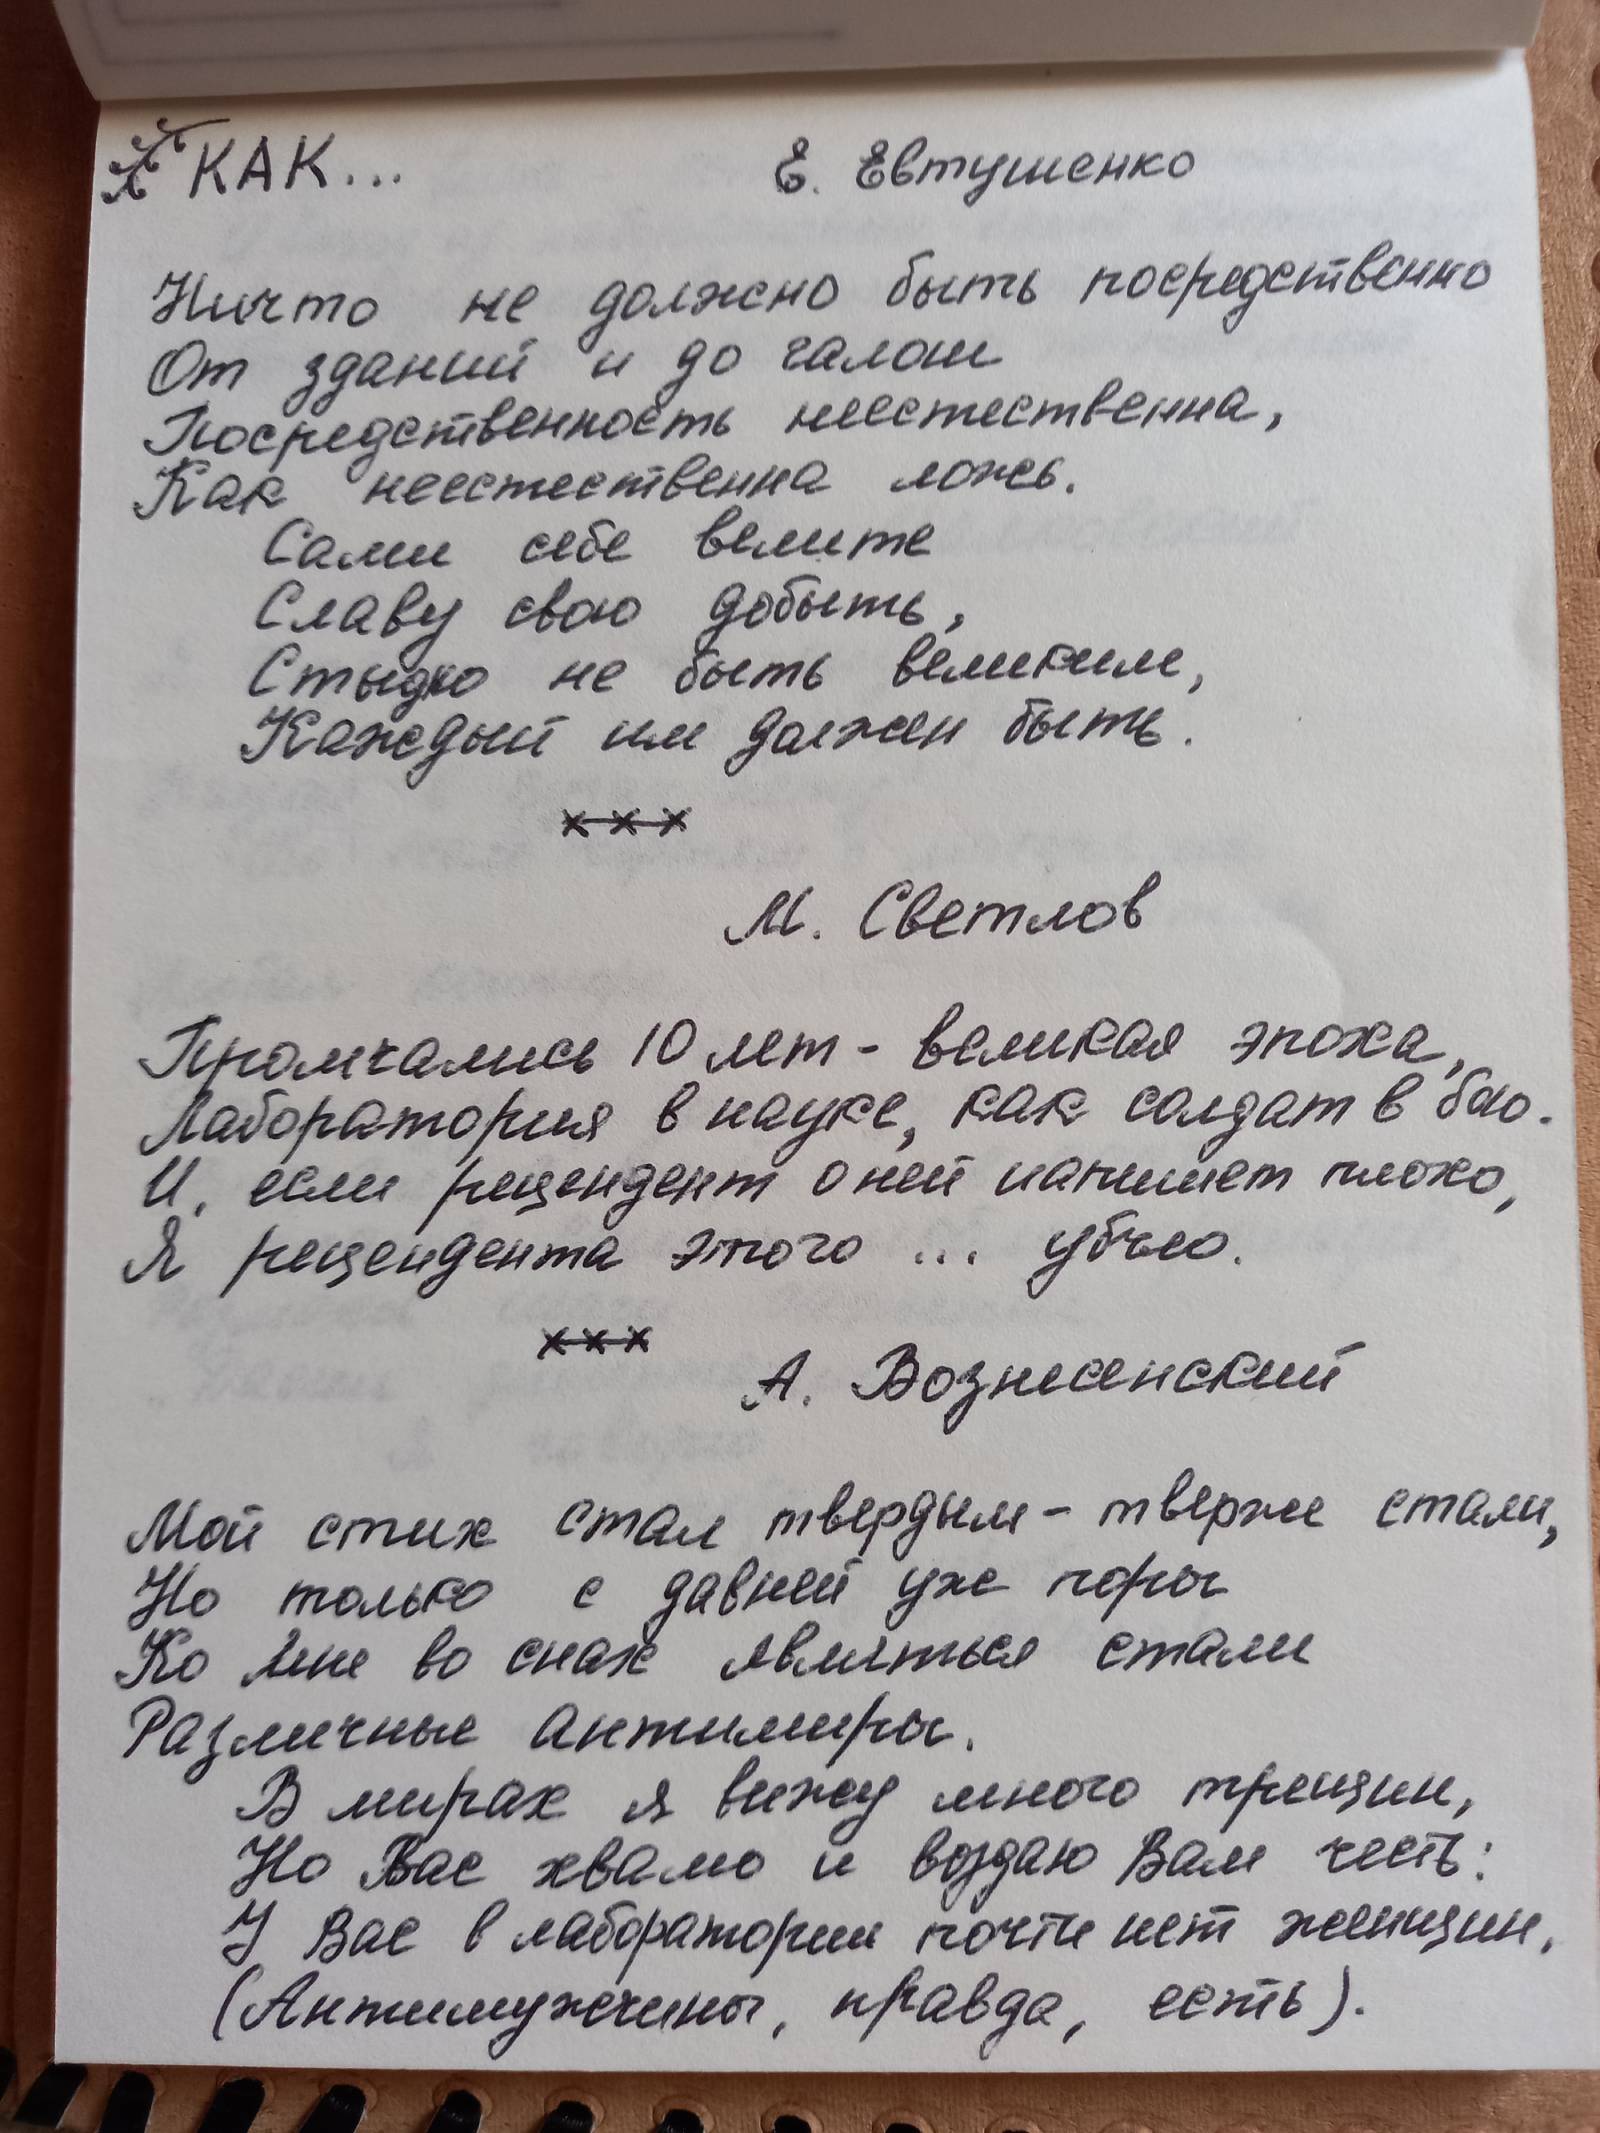 КАК... Е. Евтушенко
Ничто не должно быть посредственно
От зданий и до галош
Посредственность неестественна,
Как неестественна ложь.
Сами себе велите
Славу свою добыть,
Стыдно не быть великим,
Каждый им должен быть.
х х х
М. Светлов
Промчались 10 лет - великая эпоха,
Лаборатория в науке, как солдат в бою.
И, если рецендент о ней напишет плохо,
Я рецендента этого ... убью.
х х х
А. Вознесенский
Мой стих стал твердым - тверже стали,
Но только с давней уже поры
Ко мне во снах являться стали
Различные антимиры.
В мирах я вижу много трещин,
Но Вас хвалю и воздаю Вам честь:
У Вас в лаборатории почти нет женщин,
(Антимужчины, правда, есть).